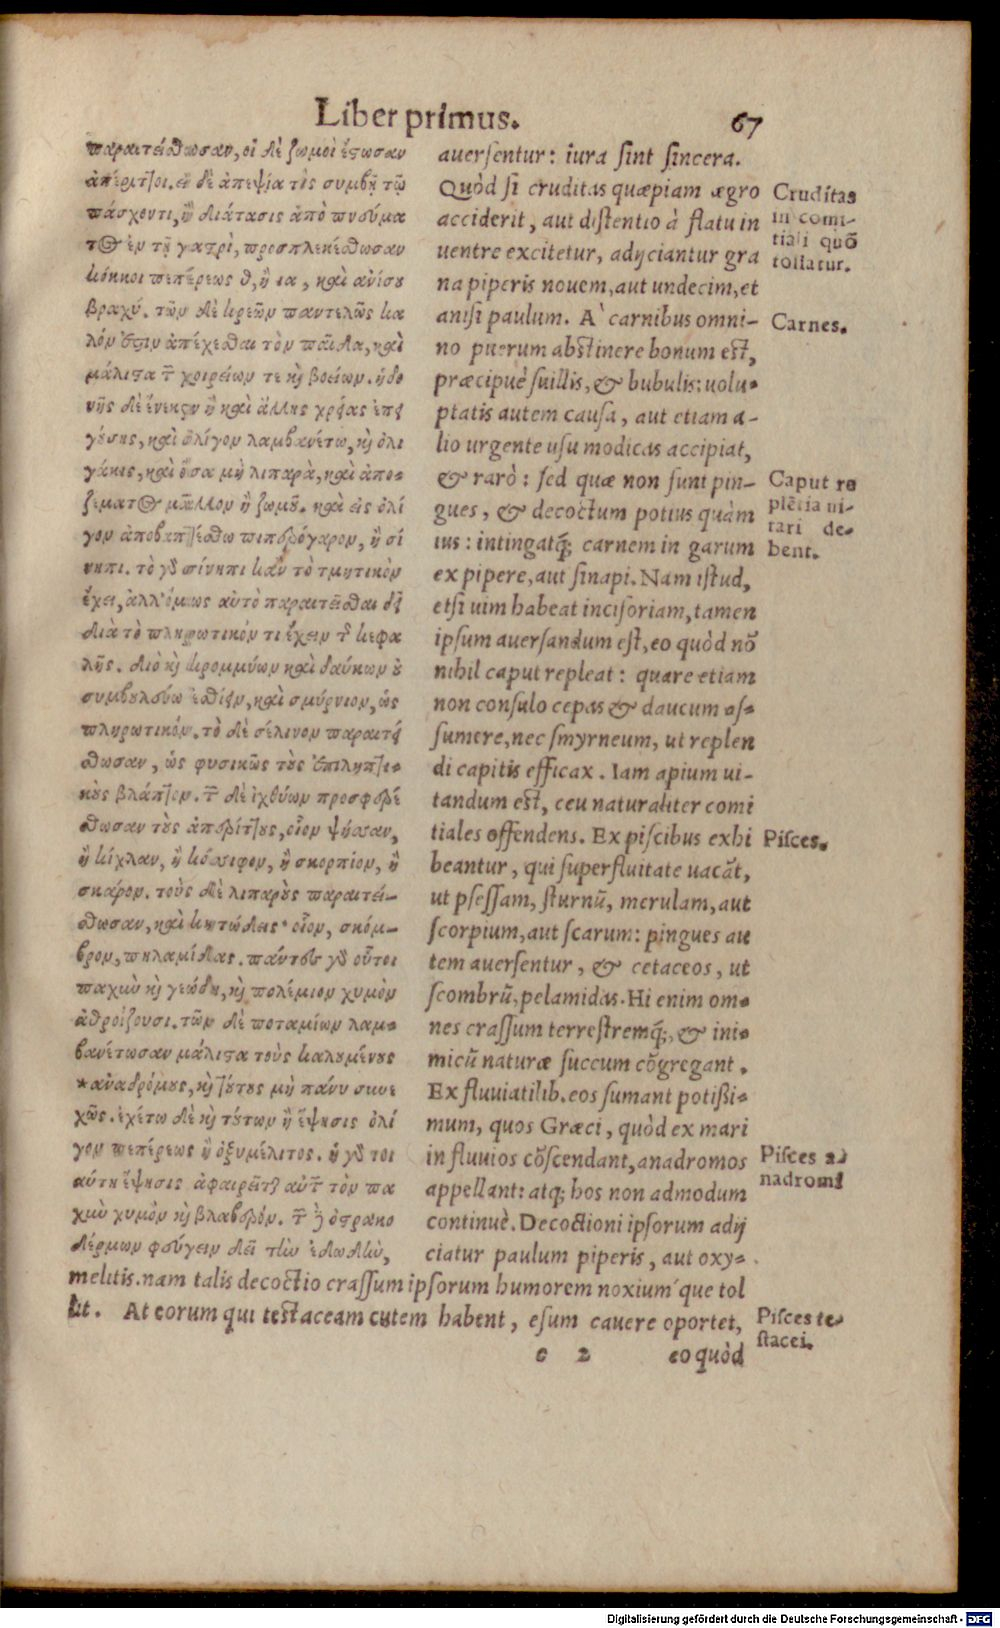 Liber primus. 67
παραιτείσθωσαν, οἱ δὲ ζωμοὶ ἔστωσαν
ἀπέριττοι. εἰ δὲ ἀπεψία τὶς συμβῇ τῷ
πάσχοντι, ἢ διάτασις ἀπὸ πνεύμα
τος ἐν τῇ γαστρὶ, προσπλεκέσθωσαν
κόκκοι πεπέρεως θ, ἢ ια, καὶ ἀνίσου
βραχύ. τῶν δὲ κρεῶν παντελῶς κα
λόν ἐστιν ἀπέχεσθαι τὸν παῖδα, καὶ
μάλιστα τῶν χοιρείων τε καὶ βοείων. ἡδο
νῆς δὲ ἕνεκεν ἢ καὶ ἄλλης χρείας ἐπει
γούσης, καὶ ὀλίγον λαμβανέτω, καὶ ὀλι
γάκις, καὶ ὅσα μὴ λιπαρὰ, καὶ ἀπο-
ζέματος μᾶλλον ἢ ζωμοῦ. καὶ εἰς ὀλί
γον ἀποβαπτέσθω πιπερόγαρον, ἢ σί
νηπι. τὸ γὰρ σίνηπι κἂν τὸ τμητικὸν
ἔχει, ἀλλ' ὅμως αὐτὸ παραιτεῖσθαι δεῖ
διὰ τὸ πληρωτικόν τι ἔχειν τῆς κεφα
λῆς. διὸ καὶ κρομμύων καὶ δαύκων οὐ
συμβουλεύω ἐσθίειν, καὶ σμύρνιον, ὡς
πληρωτικόν. τὸ δὲ σέλινον παραιτεί
σθωσαν, ὡς φυσικῶς τοὺς ἐπιληπτι-
κοὺς βλάπτον. τῶν δὲ ἰχθύων προσφερέ
σθωσαν τοὺς ἀπερίττους, οἷον ψῆσσαν,
ἢ κίχλαν, ἢ κόσσιφον, ἢ σκορπίον, ἢ
σκάρον. τοὺς δὲ λιπαροὺς παραιτεί-
σθωσαν, καὶ κητώδεις· οἷον, σκόμ-
βρον, πηλαμίδας. πάντες γὰρ οὗτοι
παχὺν καὶ γεώδη, καὶ πολέμιον χυμὸν
ἀθροίζουσι. τῶν δὲ ποταμίων λαμ-
βανέτωσαν μάλιστα τοὺς καλουμένους
*ἀναδρόμους, καὶ τούτους μὴ πάνυ συνε
χῶς. ἐχέτω δὲ καὶ τούτων ἡ ἕψησις ὀλί
γον πεπέρεως ἢ ὀξυμέλιτος. ἡ γὰρ τοι
αύτη ἕψησις ἀφαιρεῖται αὐτῶν τὸν πα
χὺν χυμὸν καὶ βλαβερόν. τῶν δὲ ὀστρακο
δέρμων φεύγειν δεῖ τὴν ἐδωδὴν,
auersentur: iura sint sincera.
Quòd si cruditas quæpiam ægro
acciderit, aut distentio à flatu in
uentre excitetur, adijciantur gra
na piperis nouem, aut undecim, et
anisi paulum. A' carnibus omni-
no puerum abstinere bonum est,
præcipuè suillis, & bubulis: uolu-
ptatis autem causa, aut etiam a-
lio urgente usu modicas accipiat,
& rarò: sed quæ non sunt pin-
gues, & decoctum potius quàm
ius: intingatq́; carnem in garum
ex pipere, aut sinapi. Nam istud,
etsi uim habeat incisoriam, tamen
ipsum auersandum est, eo quòd nō
nihil caput repleat: quare etiam
non consulo cepas & daucum as-
sumere, nec smyrneum, ut replen
di capitis efficax. Iam apium ui-
tandum est, ceu naturaliter comi
tiales offendens. Ex piscibus exhi
beantur, qui superfluitate uacāt,
ut psessam, sturnū, merulam, aut
scorpium, aut scarum: pingues au
tem auersentur, & cetaceos, ut
scombrū, pelamidas. Hi enim om-
nes crassum terrestremq́;, & ini-
micū naturæ succum cōgregant.
Ex fluuiatilib. eos sumant potißi-
mum, quos Græci, quòd ex mari
in fluuios cōscendant, anadromos
appellant: atq; hos non admodum
continuè. Decoctioni ipsorum adij
ciatur paulum piperis, aut oxy-
melitis. nam talis decoctio crassum ipsorum humorem noxium que tol
lit. At eorum qui testaceam cutem habent, esum cauere oportet,
c 2 eo quòd
Cruditas
in comi-
tiali quō
tollatur.
Carnes.
Caput re
plētia ui-
tari de-
bent.
Pisces.
Pisces a-
nadromi
Pisces te-
stacei.
Digitalisierung gefördert durch die Deutsche Forschungsgemeinschaft - DFG